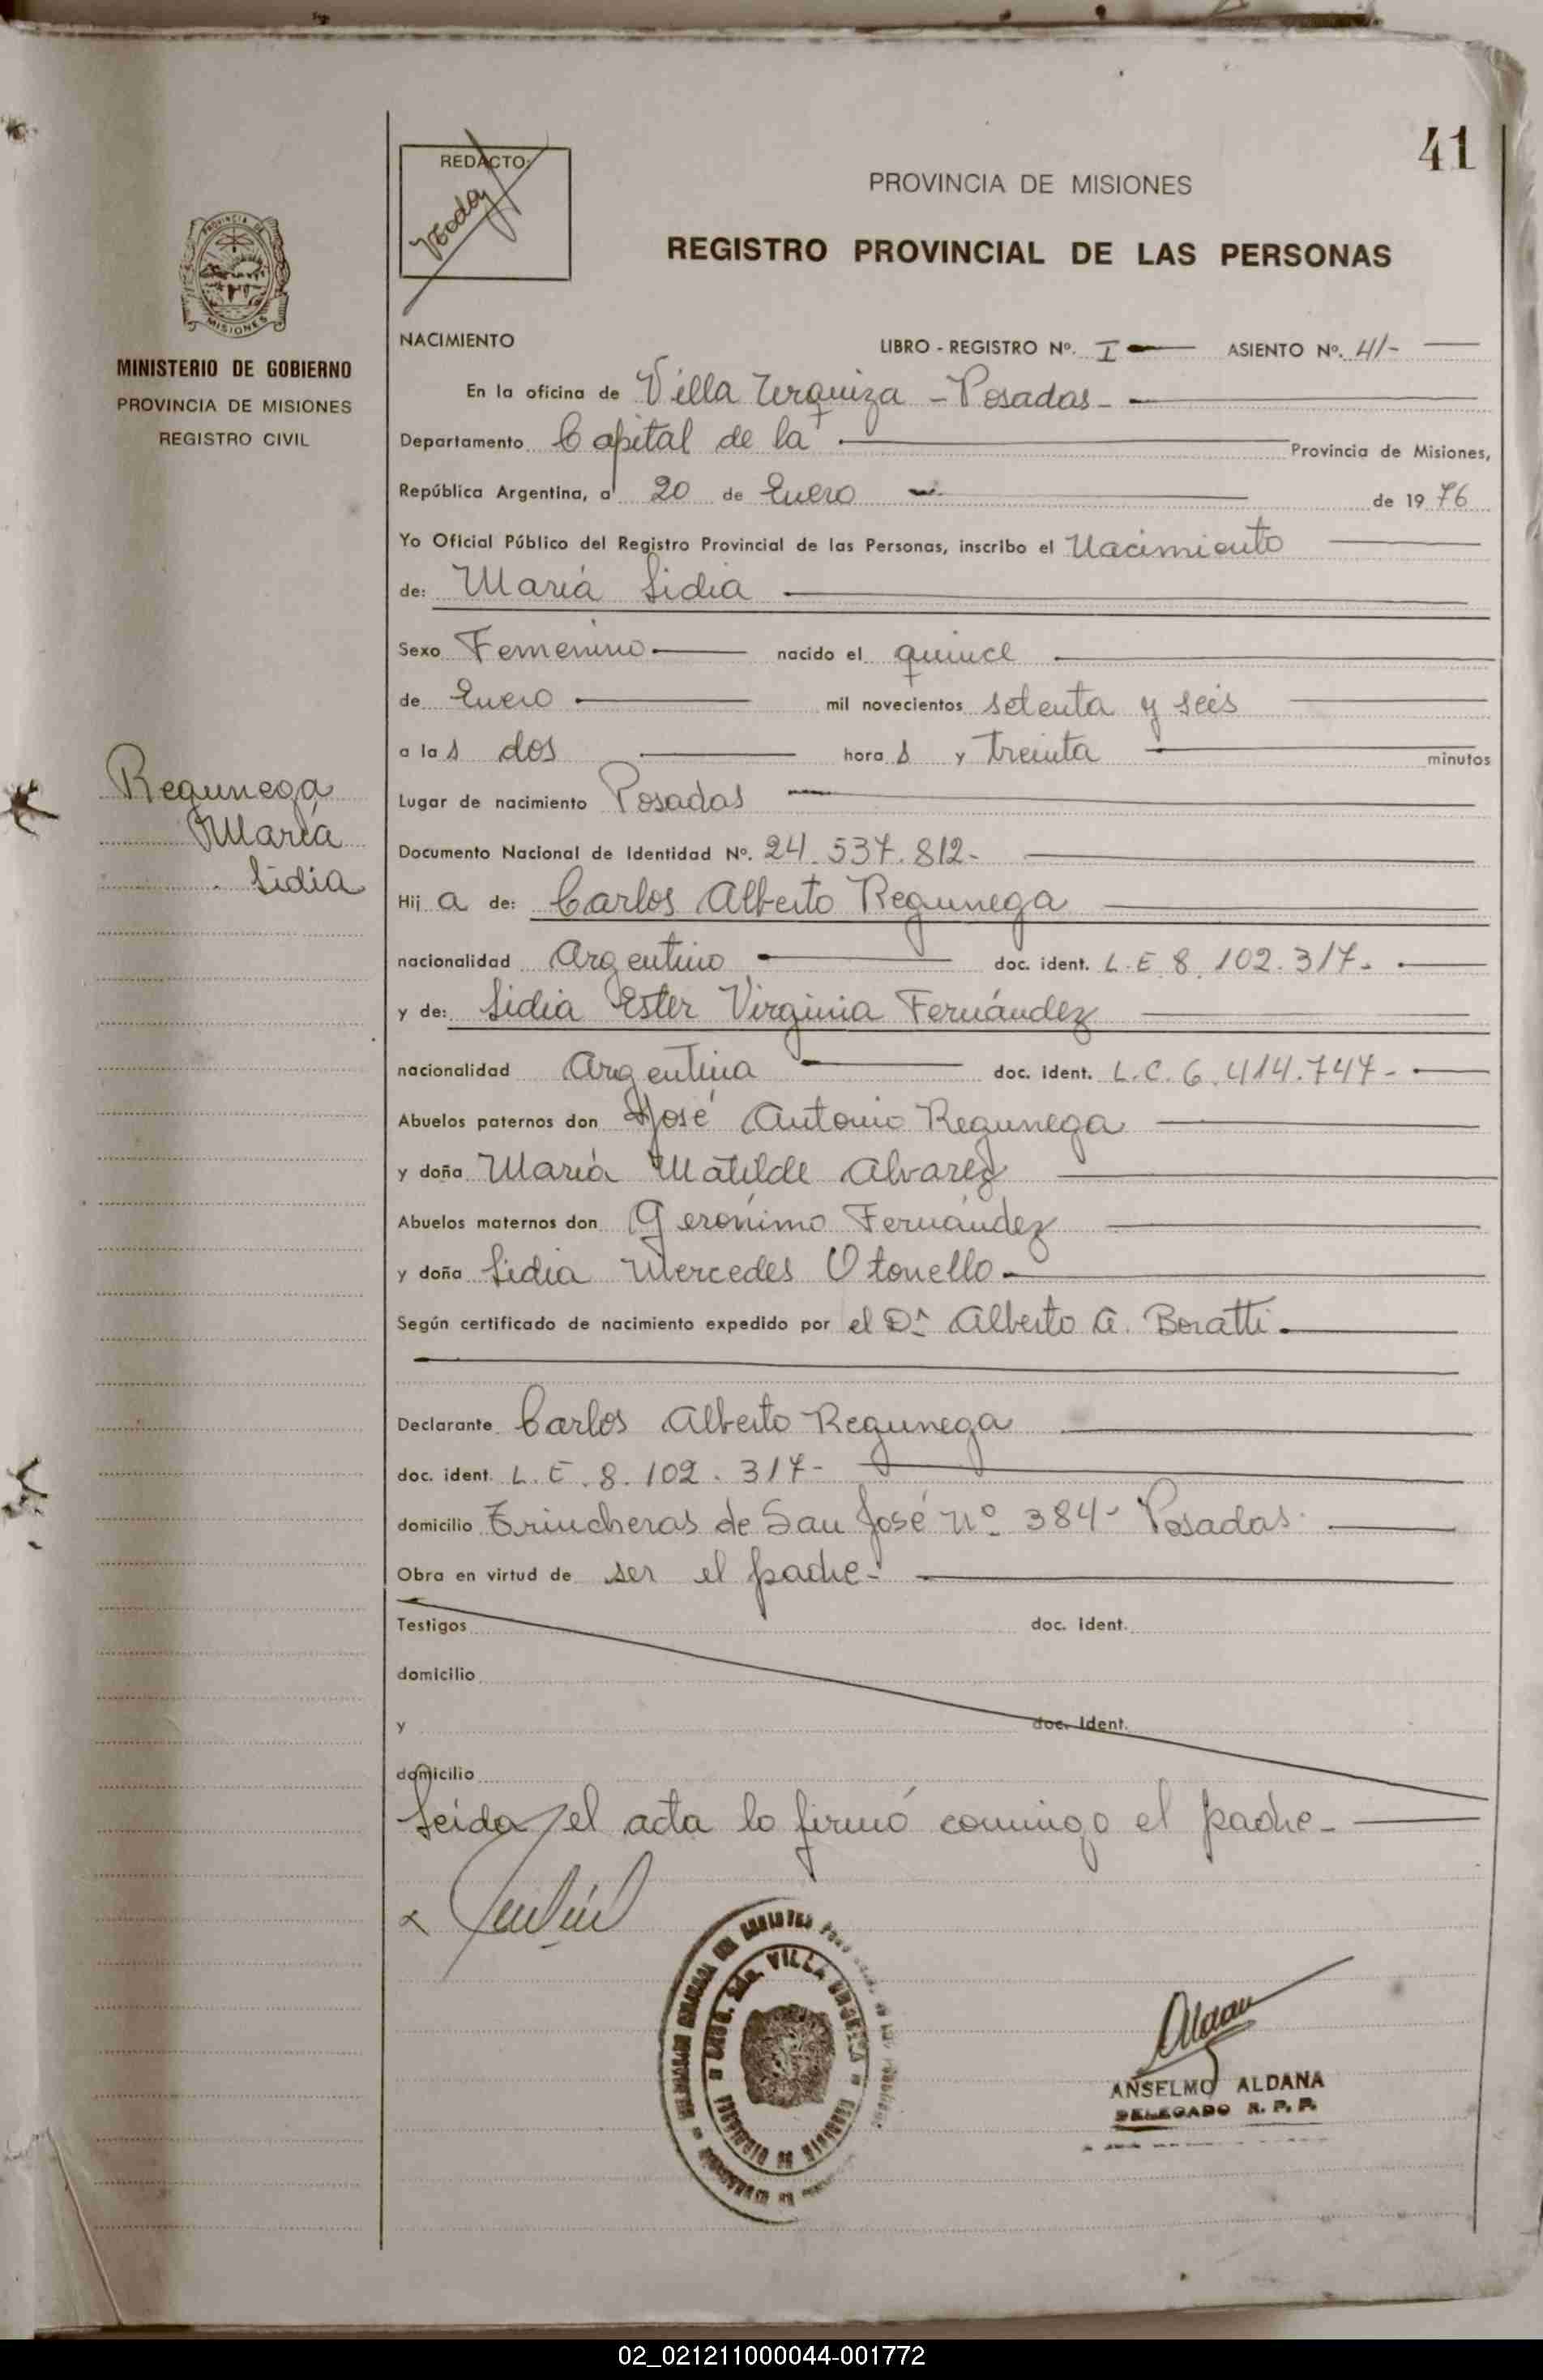 41
REDACTO:
PROVINCIA DE MISIONES
REGISTRO PROVINCIAL DE LAS PERSONAS
PROVINCIA DE
MISIONES
MINISTERIO DE GOBIERNO
PROVINCIA DE MISIONES
REGISTRO CIVIL
Regunega
María
Lidia
NACIMIENTO LIBRO - REGISTRO Nº. I ASIENTO Nº. 41-
En la oficina de Villa Urquiza - Posadas -
Departamento Capital de la Provincia de Misiones,
República Argentina, a 20 de Enero de 1976
Yo Oficial Público del Registro Provincial de las Personas, inscribo el Nacimiento
de: María Lidia
Sexo Femenino nacido el quince
de Enero mil novecientos setenta y seis
a las dos horas y treinta minutos
Lugar de nacimiento Posadas
Documento Nacional de Identidad Nº. 24.537.812-
Hija de: Carlos Alberto Regunega
nacionalidad Argentino doc. ident. L.E 8.102.317-
y de: Lidia Ester Virginia Fernández
nacionalidad Argentina doc. ident. L.C. 6.414.747-
Abuelos paternos don José Antonio Regunega
y doña María Matilde Alvarez
Abuelos maternos don Gerónimo Fernández
y doña Lidia Mercedes Otonello
Según certificado de nacimiento expedido por el Dr Alberto A. Boratti.
Declarante Carlos Alberto Regunega
doc. ident. L.E. 8.102.317-
domicilio Trincheras de San José Nº 384- Posadas.
Obra en virtud de ser el padre-
Testigos doc. ident.
domicilio
y doc. ident.
domicilio
Leida el acta lo firmó conmigo el padre-
VILLA URQUIZA
Aldana
ANSELMO ALDANA
DELEGADO R. P. P.
02_021211000044-001772